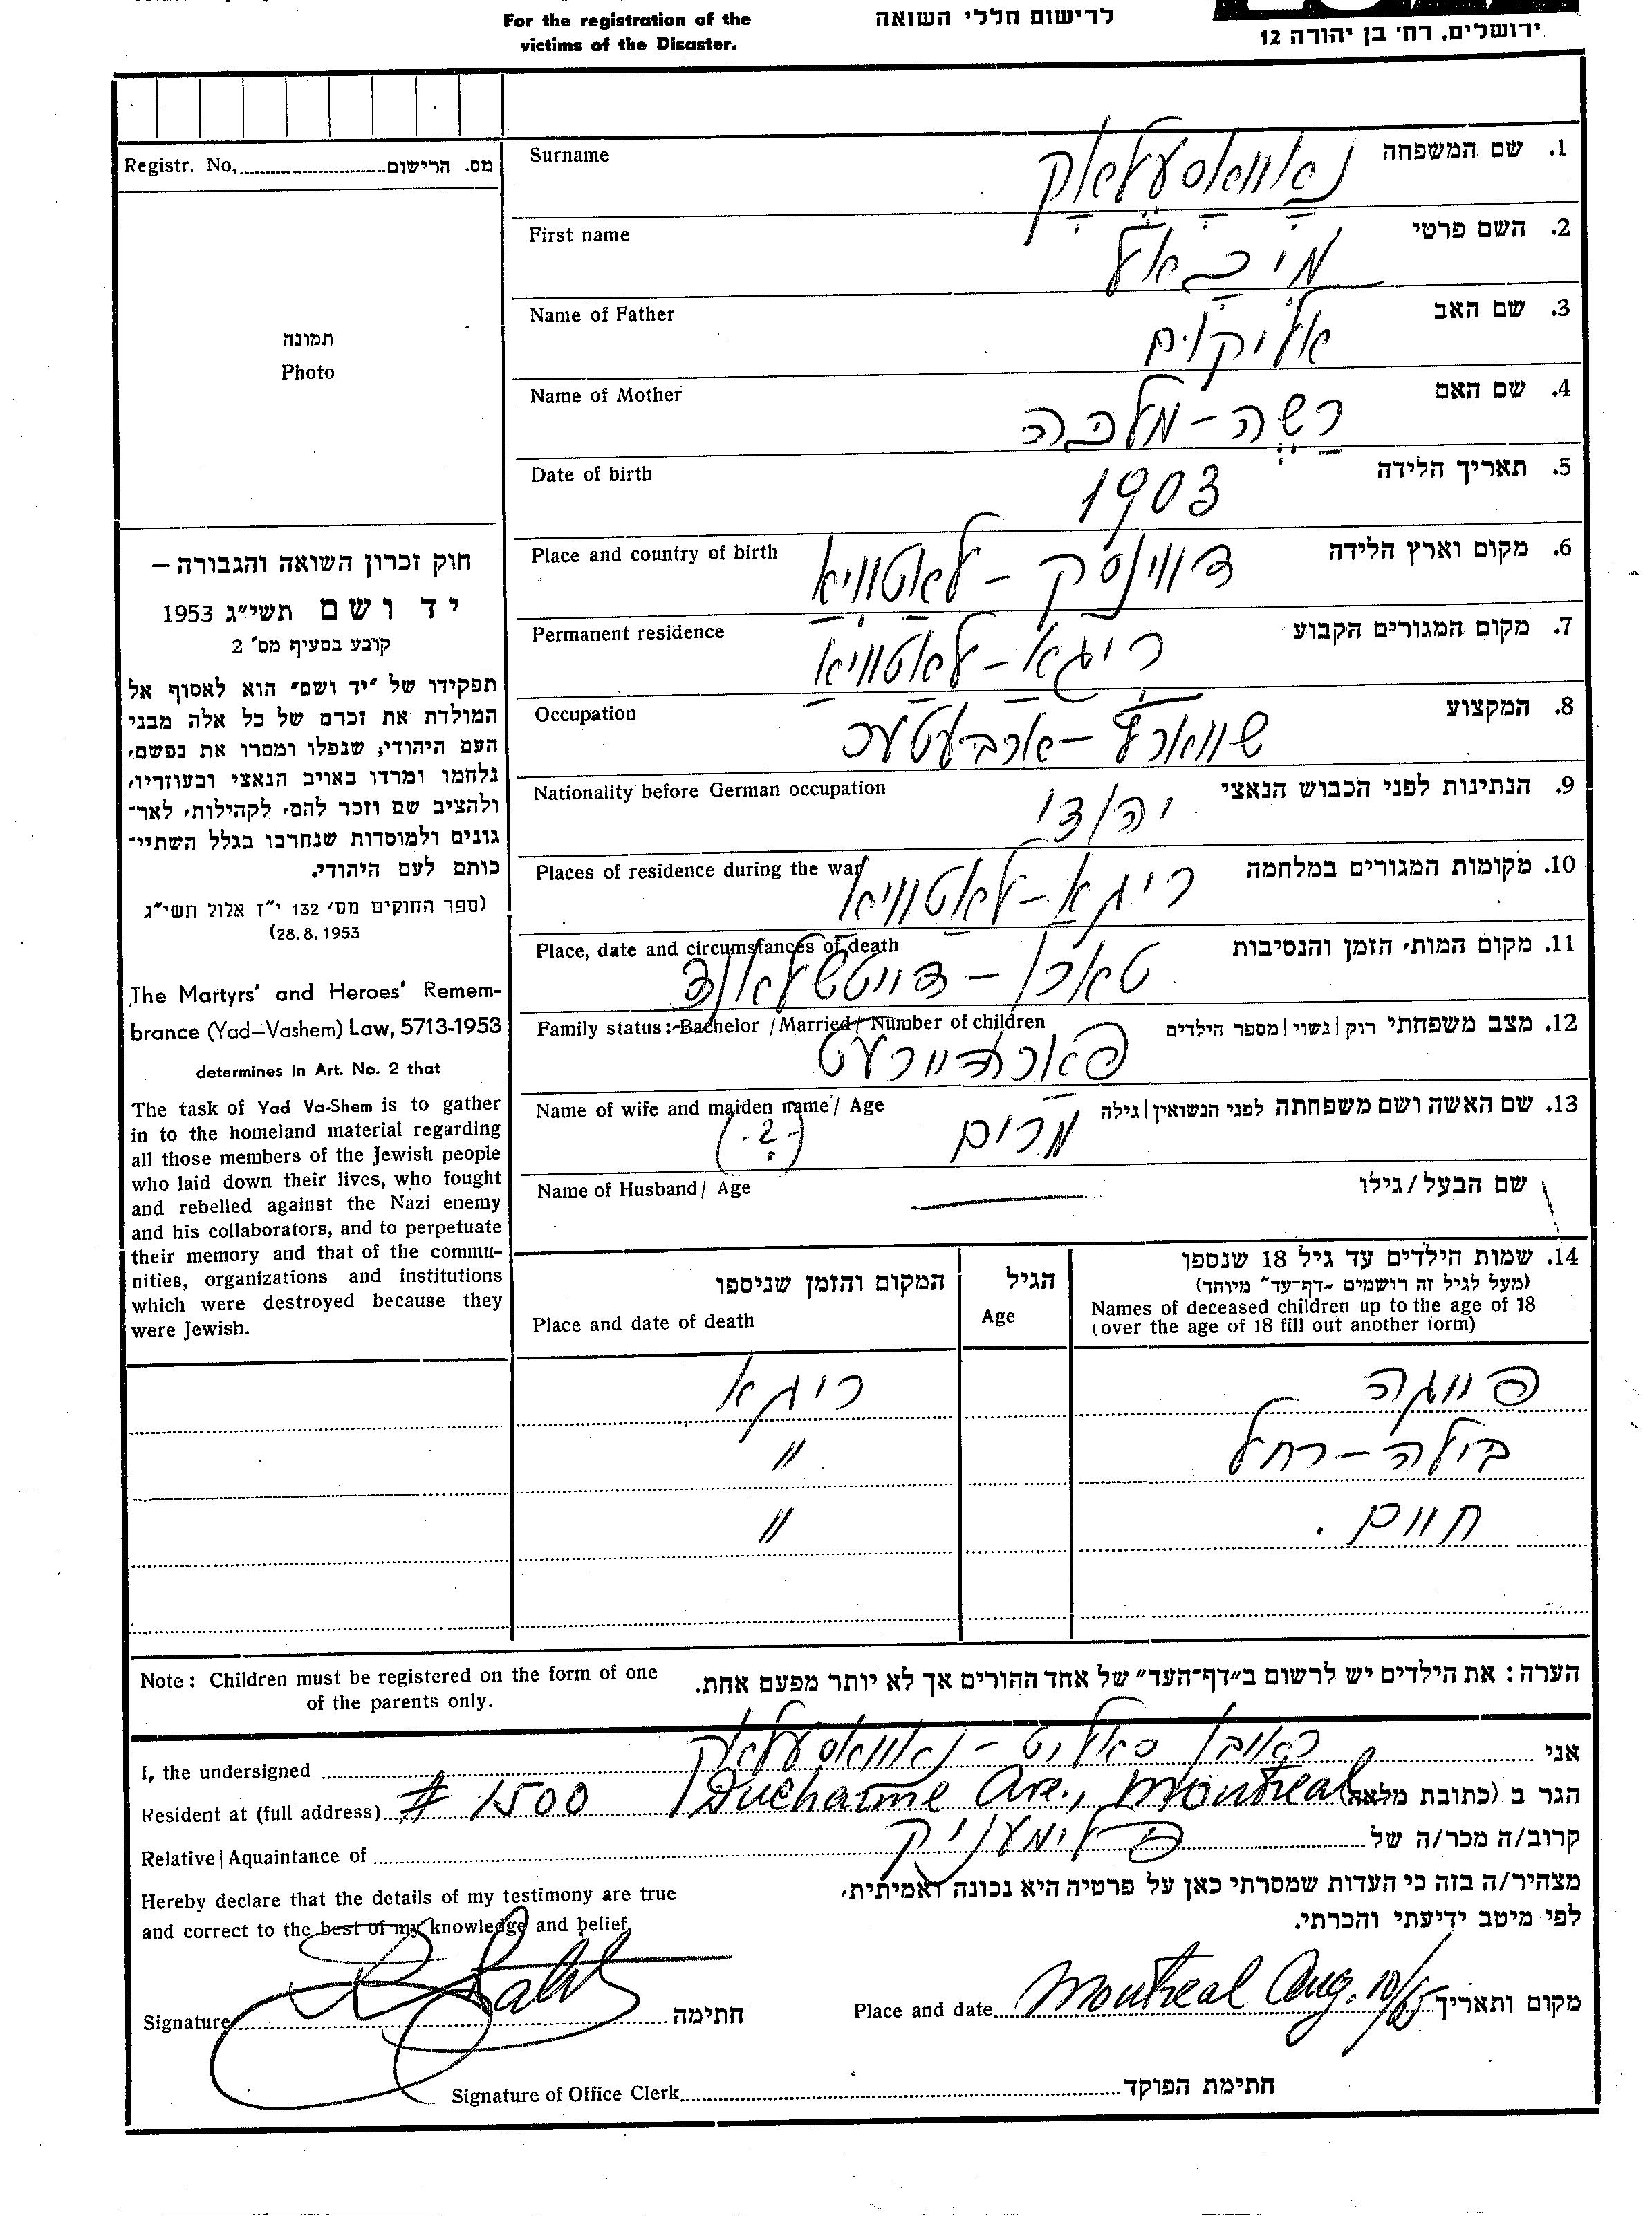 For the registration of the
victims of the Disaster.
לרישום חללי השואה
ירושלים, רח' בן יהודה 12
Registr. No. מס. הרישום
תמונה
Photo
חוק זכרון השואה והגבורה –
יד ושם תשי"ג 1953
קובע בסעיף מס' 2
תפקידו של "יד ושם" הוא לאסוף אל
המולדת את זכרם של כל אלה מבני
העם היהודי, שנפלו ומסרו את נפשם,
נלחמו ומרדו באויב הנאצי ובעוזריו,
ולהציב שם וזכר להם, לקהילות, לאר־
גונים ולמוסדות שנחרבו בגלל השתיי־
כותם לעם היהודי.
(ספר החוקים מס' 132 י"ז אלול תשי"ג
(28.8.1953
The Martyrs' and Heroes' Remem-
brance (Yad–Vashem) Law, 5713-1953
determines in Art. No. 2 that
The task of Yad Va-Shem is to gather
in to the homeland material regarding
all those members of the Jewish people
who laid down their lives, who fought
and rebelled against the Nazi enemy
and his collaborators, and to perpetuate
their memory and that of the commu-
nities, organizations and institutions
which were destroyed because they
were Jewish.
1. שם המשפחה נאוואסעלאק Surname
2. השם פרטי מיכאל First name
3. שם האב אליקים Name of Father
4. שם האם רשה-מלכה Name of Mother
5. תאריך הלידה 1903 Date of birth
6. מקום וארץ הלידה דווינסק - לאטוויא Place and country of birth
7. מקום המגורים הקבוע ריגא - לאטוויא Permanent residence
8. המקצוע שווארץ - ארבעטער Occupation
9. הנתינות לפני הכבוש הנאצי יהודי Nationality before German occupation
10. מקומות המגורים במלחמה ריגא - לאטוויא Places of residence during the war
11. מקום המות, הזמן והנסיבות דייטשלאנד Place, date and circumstances of death
12. מצב משפחתי רוק | נשוי | מספר הילדים Family status: Bachelor / Married / Number of children
13. שם האשה ושם משפחתה לפני הנשואין | גילה מרים (-?-) Name of wife and maiden name / Age
שם הבעל / גילו Name of Husband / Age
14. שמות הילדים עד גיל 18 שנספו
(מעל לגיל זה רושמים "דף־עד" מיוחד)
Names of deceased children up to the age of 18
(over the age of 18 fill out another form)
הגיל
Age
המקום והזמן שניספו
Place and date of death
פייגה ריגא
ביילה - רחל "
חיים. "
הערה: את הילדים יש לרשום ב"דף־העד" של אחד ההורים אך לא יותר מפעם אחת.
Note: Children must be registered on the form of one
of the parents only.
אני ראובן נאוואסעלאק I, the undersigned
הגר ב (כתובת מלאה) Resident at (full address) # 1500 Ducharme Ave., Montreal
קרוב/ה מכר/ה של פלימעניק Relative | Aquaintance of
מצהיר/ה בזה כי העדות שמסרתי כאן על פרטיה היא נכונה ואמיתית,
לפי מיטב ידיעתי והכרתי.
Hereby declare that the details of my testimony are true
and correct to the best of my knowledge and belief
מקום ותאריך Place and date Montreal Aug. 10/65
חתימה Signature
חתימת הפוקד Signature of Office Clerk